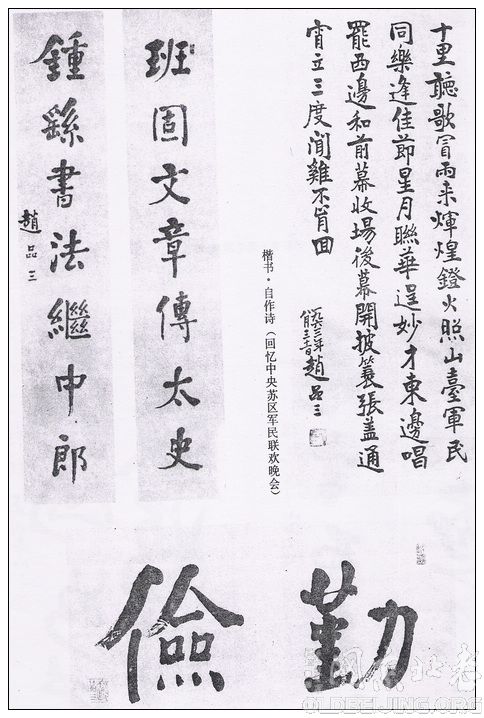 十里聽歌冒雨来輝煌鐙火照山臺軍民
同樂逢佳節星月聯華逞妙才東邊唱
罷西邊和前幕收場後幕開披簑張盖通
宵立三度闻雞不肯囬
趙品三
楷书·自作诗（回忆中央苏区军民联欢晚会）
班固文章傳太史
鍾繇書法繼中郎
趙品三
勤儉
OLDBEIJING.ORG